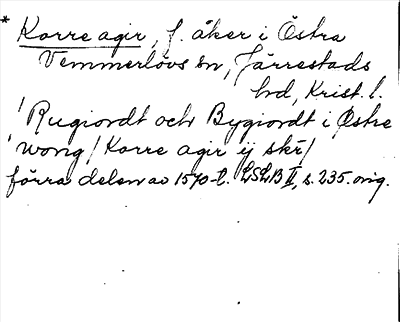 * Korre agir, f. åker i Östra
Vemmerlövs sn, Järrestads
hd, Krist. l.
/ Rugiordt och Bygiordt i Østre
wong / Korre agir ij skr /
förra delen av 1570-t. LSLB II, s. 235. orig.